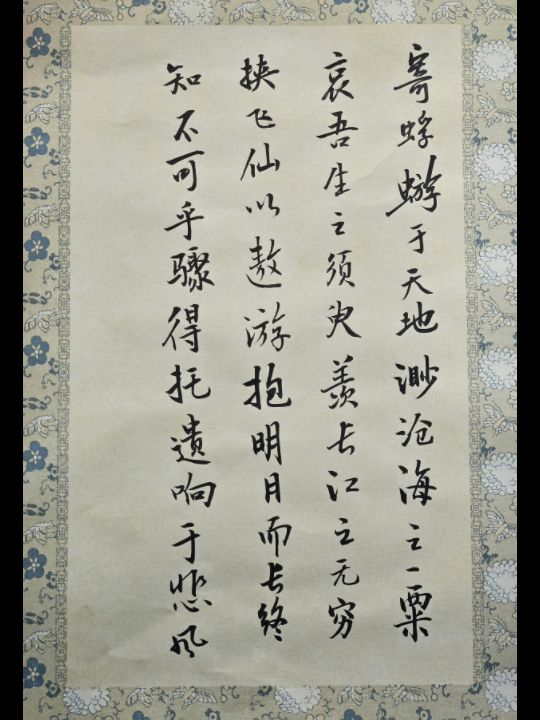 寄蜉蝣于天地渺沧海之一粟
哀吾生之须臾羡长江之无穷
挟飞仙以遨游抱明月而长终
知不可乎骤得托遗响于悲风